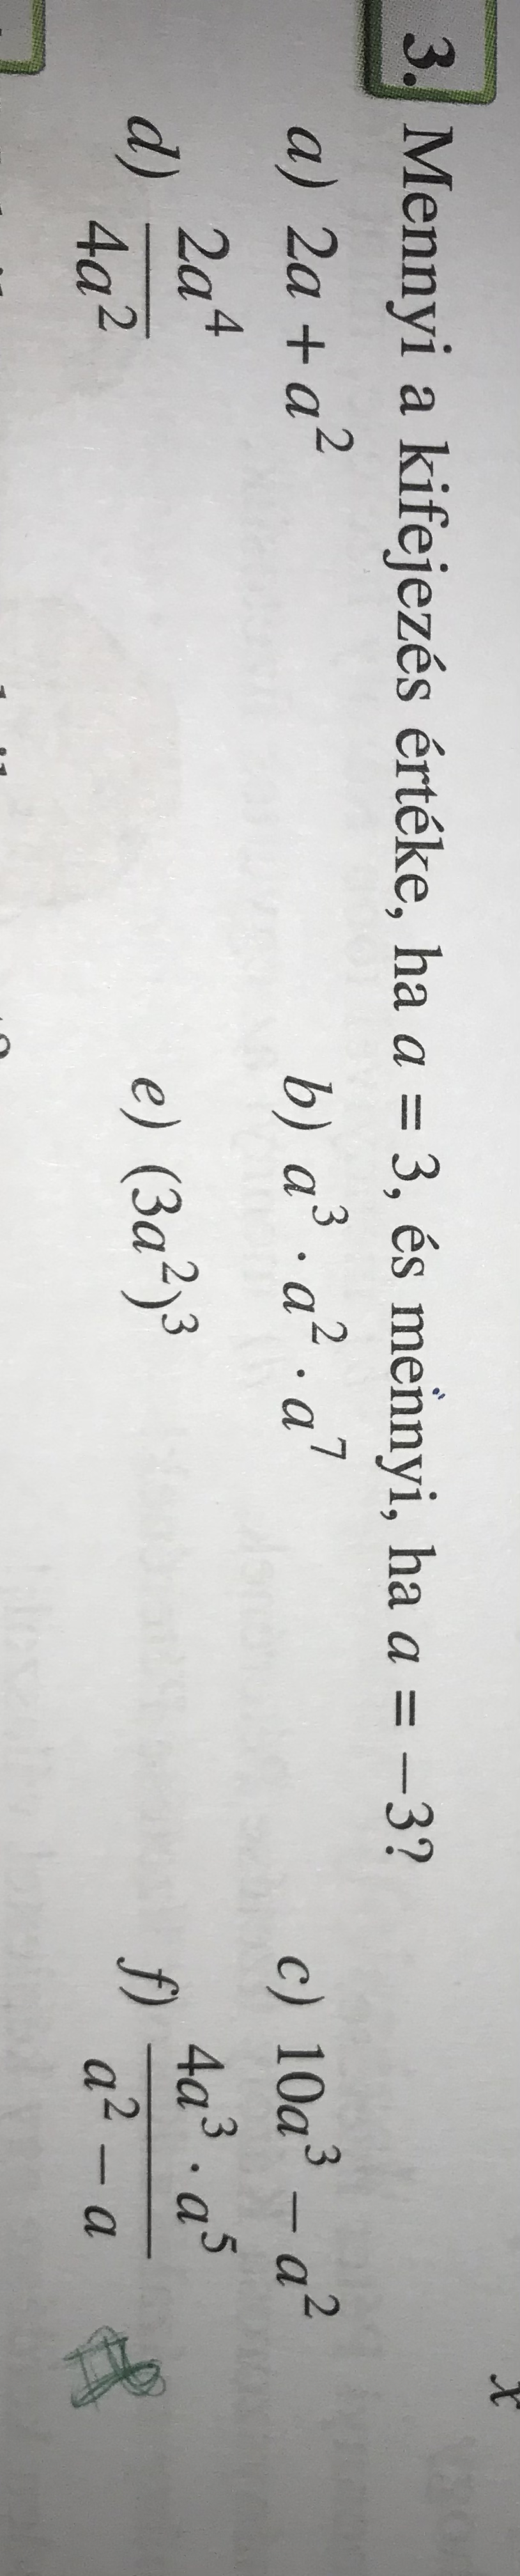 3. Mennyi a kifejezés értéke, ha a = 3, és mennyi, ha a = −3?
a) 2a + a² b) a³ · a² · a⁷ c) 10a³ − a²
d) 2a⁴/4a² e) (3a²)³ f) (4a³ · a⁵)/(a² − a)
x